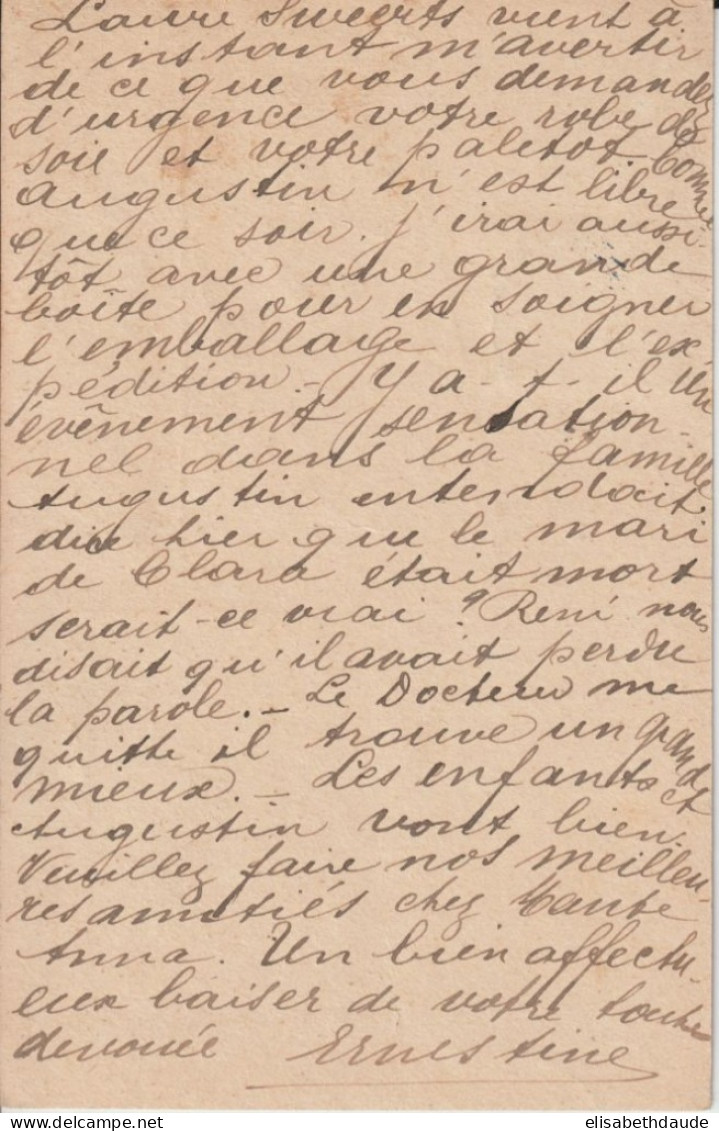 Laure Sweerts vient à
l'instant m'avertir
de ce que vous demandez
d'urgence votre robe de
soie et votre paletot. Comme
Augustin n'est libre
que ce soir. j'irai aussi
tôt avec une grande
boîte pour en soigner
l'emballage et l'ex-
pédition. - Y a-t-il un
évênement sensation-
nel dans la famille
Augustin entendait
dire hier que le mari
de Clara était mort
serait-ce vrai ? René nous
disait qu'il avait perdu
la parole. - Le Docteur me
quitte il trouve un grand
mieux. - Les enfants et
Augustin vont bien.
Veuillez faire nos meilleu-
res amitiés chez tante
Anna. Un bien affectu-
eux baiser de votre toute
devouée Ernestine
elisabethdaude